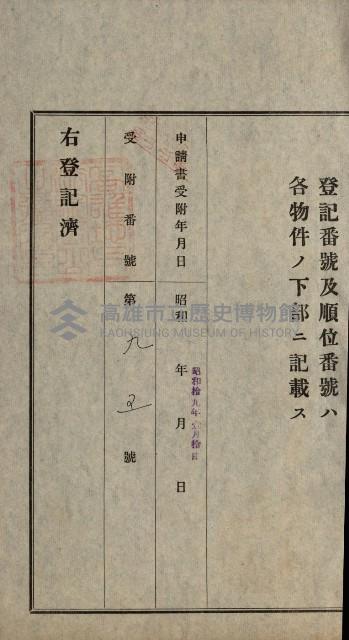 登記番號及順位番號ハ
各物件ノ下部ニ記載ス
申請書受附年月日 昭和 年 月 日
昭和拾九年 月拾 日
受附番號 第九 號
右登記濟
高雄市立歷史博物館
KAOHSIUNG MUSEUM OF HISTORY